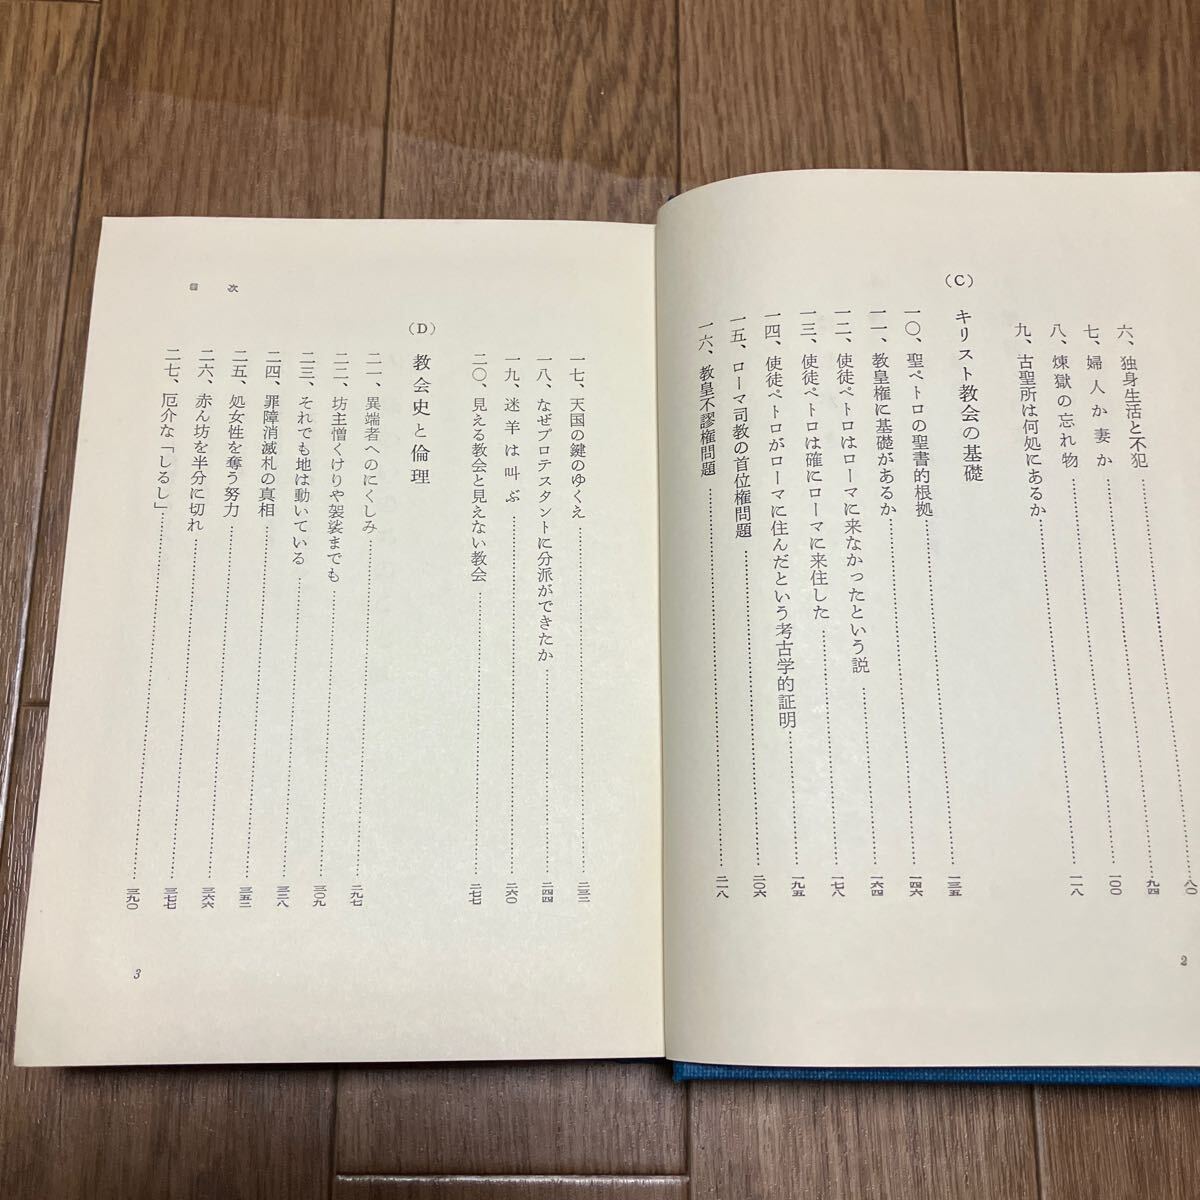 六、独身生活と不犯……八〇
七、婦人か妻か……九四
八、煉獄の忘れ物……一〇〇
九、古聖所は何処にあるか……一一八
(C) キリスト教会の基礎
一〇、聖ペトロの聖書的根拠……一三五
一一、教皇権に基礎があるか……一四六
一二、使徒ペトロはローマに来なかったという説……一六四
一三、使徒ペトロは確にローマに来住した……一七八
一四、使徒ペトロがローマに住んだという考古学的証明……一九五
一五、ローマ司教の首位権問題……二〇六
一六、教皇不謬権問題……二一八
2
一七、天国の鍵のゆくえ……二三三
一八、なぜプロテスタントに分派ができたか……二四四
一九、迷羊は叫ぶ……二六〇
二〇、見える教会と見えない教会……二七七
(D) 教会史と倫理
二一、異端者へのにくしみ……二九七
二二、坊主僧くけりや袈裟までも……三〇九
二三、それでも地は動いている……三一八
二四、罪障消滅札の真相……三五二
二五、処女性を奪う努力……三六六
二六、赤ん坊を半分に切れ……三七七
二七、厄介な「しるし」……三九〇
目次
3